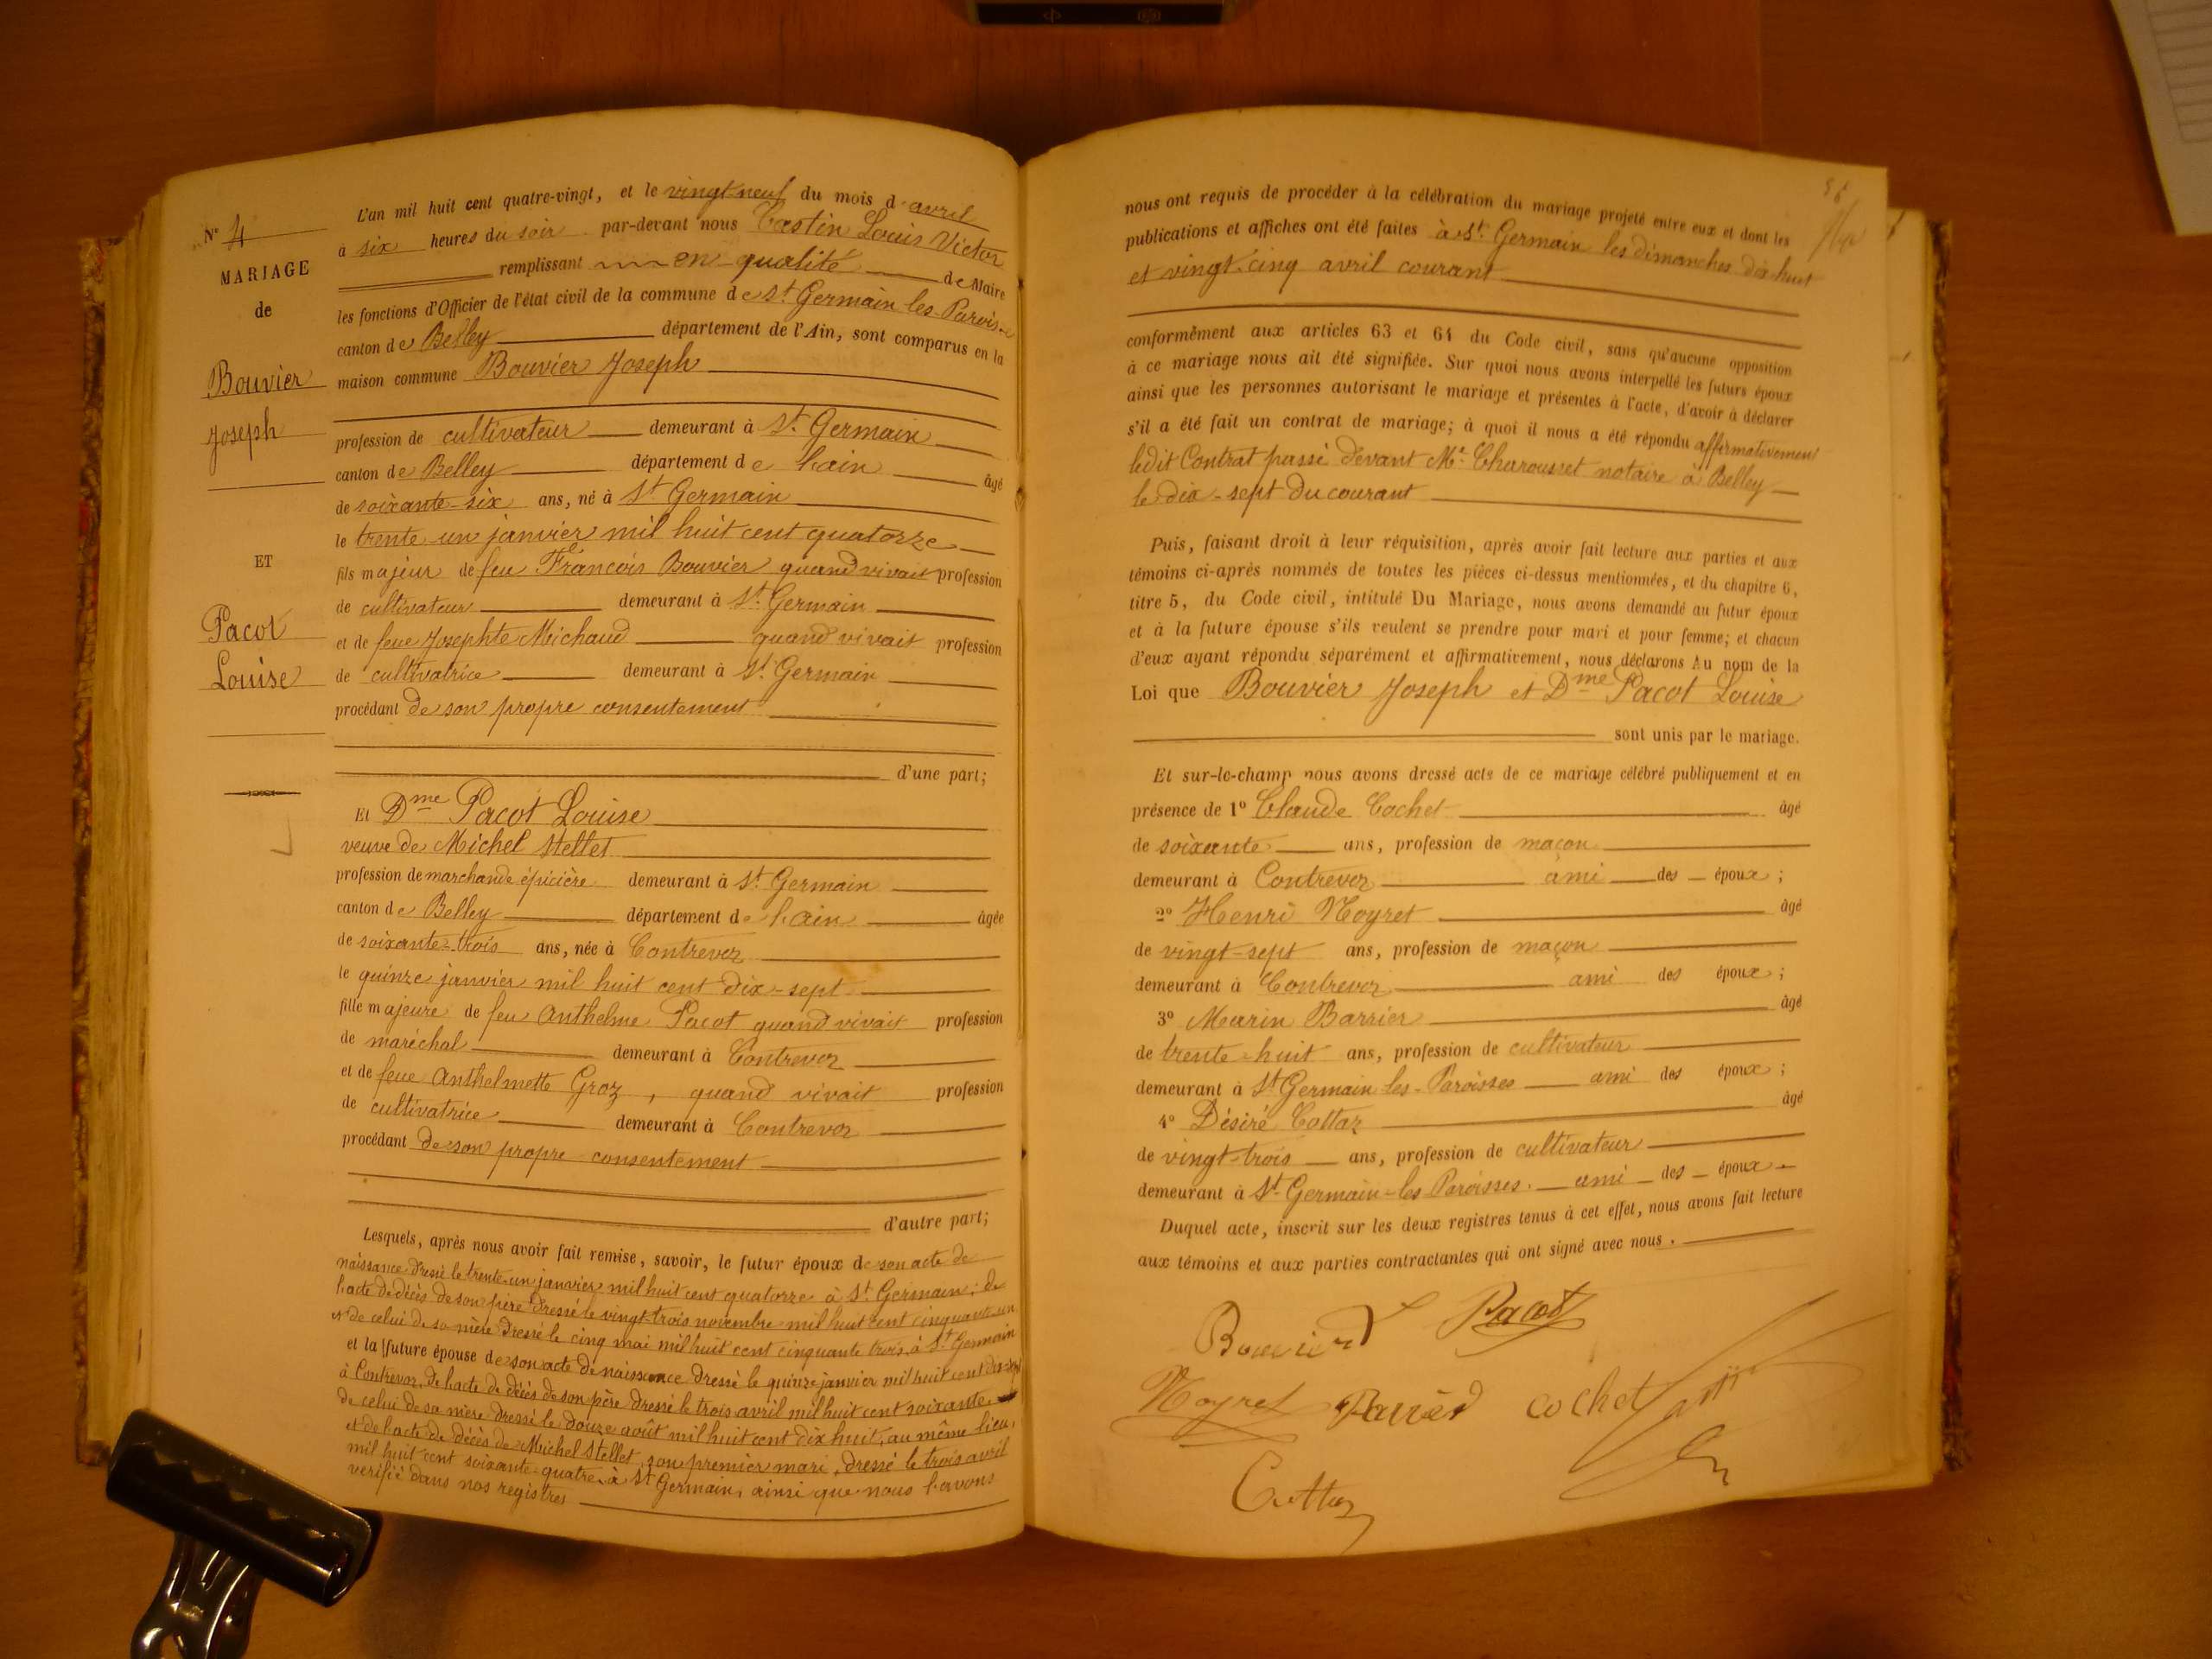 N° 4
MARIAGE
de
Bouvier
Joseph
ET
Pacot
Louise
L'an mil huit cent quatre-vingt, et le vingt-neuf du mois d'avril
à six heures du soir par-devant nous Castin Louis Victor
remplissant en qualité de Maire
les fonctions d'Officier de l'état civil de la commune de St Germain les Parois-
canton de Belley département de l'Ain, sont comparus en la
maison commune Bouvier Joseph
profession de cultivateur demeurant à St Germain
canton de Belley département de l'ain âgé
de soixante-six ans, né à St Germain
le trente un janvier mil huit cent quatorze
fils majeur de feu François Bouvier quand vivait profession
de cultivateur demeurant à St Germain
et de feue Josephte Michaud quand vivait profession
de cultivatrice demeurant à St Germain
procédant de son propre consentement
d'une part;
Et Dme Pacot Louise
veuve de Michel Stellet
profession de marchande épicière demeurant à St Germain
canton de Belley département de l'ain âgée
de soixante-trois ans, née à Contrevoz
le quinze janvier mil huit cent dix-sept
fille majeure de feu Anthelme Pacot quand vivait profession
de maréchal demeurant à Contrevoz
et de feue Anthelmette Groz, quand vivait profession
de cultivatrice demeurant à Contrevoz
procédant de son propre consentement
d'autre part;
Lesquels, après nous avoir fait remise, savoir, le futur époux de son acte de
naissance dressé le trente-un janvier mil huit cent quatorze à St Germain; de
l'acte de décès de son père dressé le vingt-trois novembre mil huit cent cinquante-un
et de celui de sa mère dressé le cinq mai mil huit cent cinquante trois, à St Germain
et la future épouse de son acte de naissance dressé le quinze janvier mil huit cent dix-sept
à Contrevoz, de l'acte de décès de son père dressé le trois avril mil huit cent soixante
de celui de sa mère dressé le douze août mil huit cent dix huit, au même lieu,
et de l'acte de décès de Michel Stellet, son premier mari, dressé le trois avril
mil huit cent soixante-quatre à St Germain, ainsi que nous l'avons
verifié dans nos registres
nous ont requis de procéder à la célébration du mariage projeté entre eux et dont les
publications et affiches ont été faites à St Germain les dimanches dix huit
et vingt-cinq avril courant
conformément aux articles 63 et 64 du Code civil, sans qu'aucune opposition
à ce mariage nous ait été signifiée. Sur quoi nous avons interpellé les futurs époux
ainsi que les personnes autorisant le mariage et présentes à l'acte, d'avoir à déclarer
s'il a été fait un contrat de mariage; à quoi il nous a été répondu affirmativement
ledit Contrat passé devant Me Charousset notaire à Belley
le dix-sept du courant
Puis, faisant droit à leur réquisition, après avoir fait lecture aux parties et aux
témoins ci-après nommés de toutes les pièces ci-dessus mentionnées, et du chapitre 6,
titre 5, du Code civil, intitulé Du Mariage, nous avons demandé au futur époux
et à la future épouse s'ils veulent se prendre pour mari et pour femme; et chacun
d'eux ayant répondu séparément et affirmativement, nous déclarons Au nom de la
Loi que Bouvier Joseph et Dme Pacot Louise
sont unis par le mariage.
Et sur-le-champ nous avons dressé acte de ce mariage célébré publiquement et en
présence de 1° Claude Cochet âgé
de soixante ans, profession de maçon
demeurant à Contrevoz ami des époux;
2° Henri Noyret âgé
de vingt-sept ans, profession de maçon
demeurant à Contrevoz ami des époux;
3° Marin Barrier âgé
de trente-huit ans, profession de cultivateur
demeurant à St Germain les-Paroisses ami des époux;
4° Désiré Cottaz âgé
de vingt-trois ans, profession de cultivateur
demeurant à St Germain-les Paroisses. ami des époux
Duquel acte, inscrit sur les deux registres tenus à cet effet, nous avons fait lecture
aux témoins et aux parties contractantes qui ont signé avec nous.
Pacot
Noyret
cochet